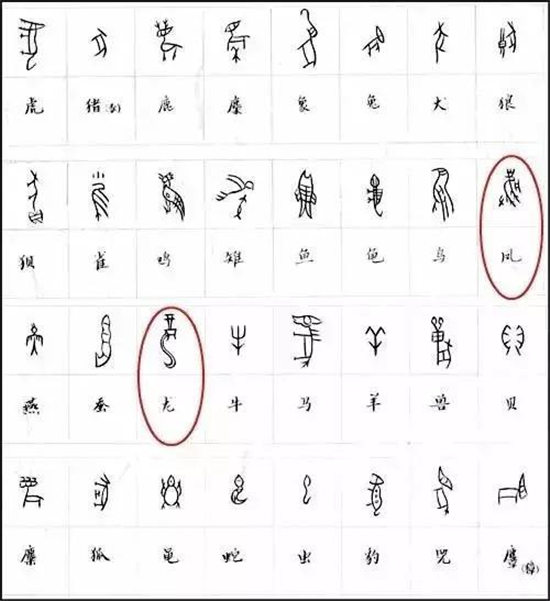 虎 猪(豕) 鹿 象 兔 犬 狼
狈 雀 鸣 雉 鱼 龟 鸟 凤
燕 蚕 龙 牛 马 羊 兽 贝
狐 黾 蛇 虫 豹 兕 麞(獐)